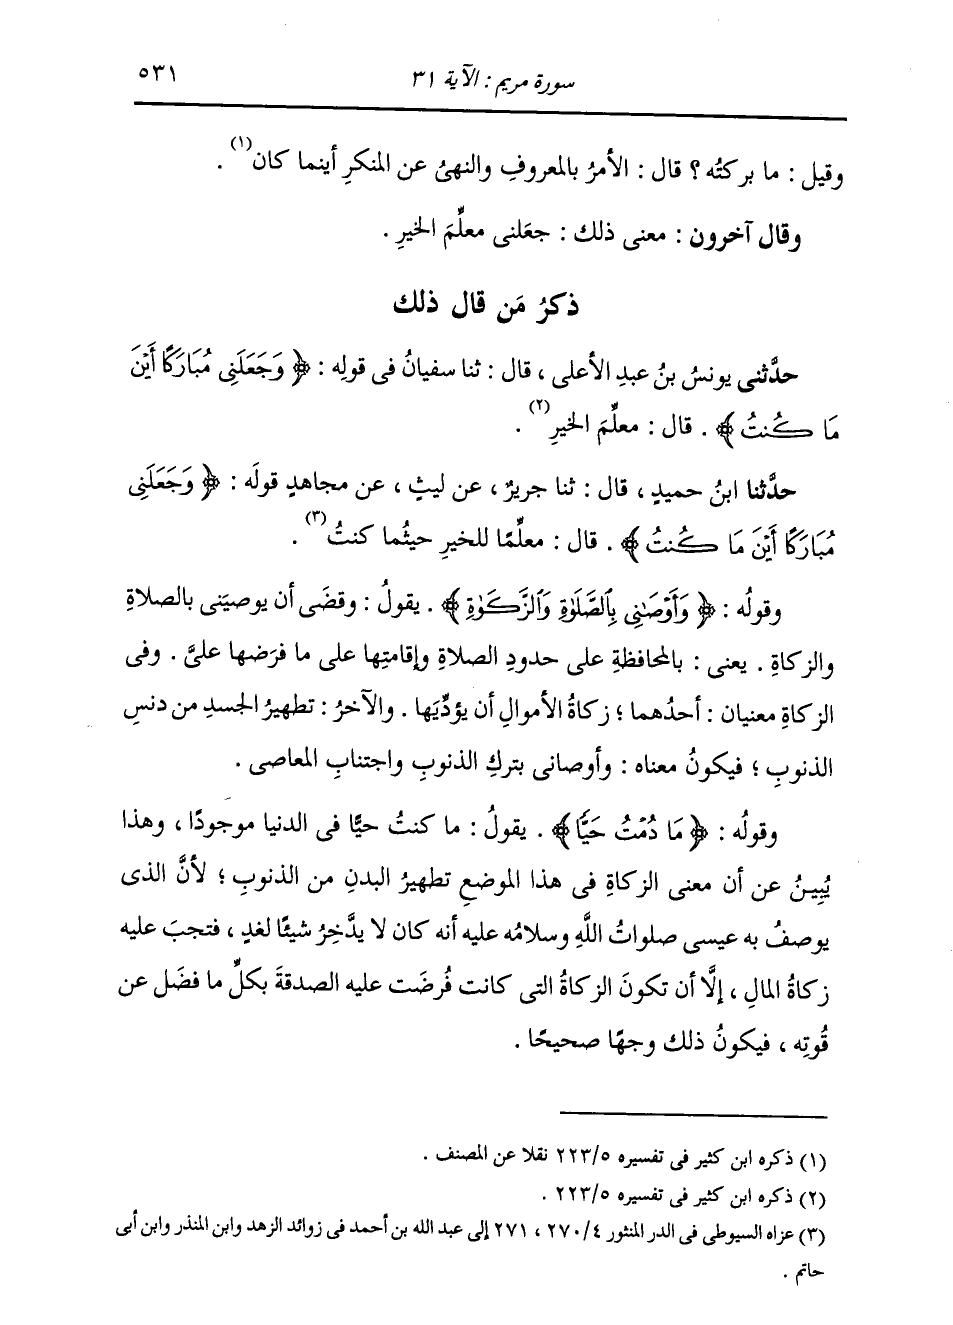 سورة مريم : الآية ٣١
٥٣١
وقيل : ما بركتُه ؟ قال : الأمرُ بالمعروفِ والنهىُ عن المنكرِ أينما كان(١) .
وقال آخرون : معنى ذلك : جعَلنى معلِّمَ الخيرِ .
ذكرُ مَن قال ذلك
حدَّثنى يونسُ بنُ عبدِ الأعلى ، قال : ثنا سفيانُ فى قولِه : ﴿ وَجَعَلَنِى مُبَارَكًا أَيْنَ
مَا كُنتُ ﴾ . قال : معلِّمَ الخيرِ(٢) .
حدَّثنا ابنُ حميدٍ ، قال : ثنا جريرٌ ، عن ليثٍ ، عن مجاهدٍ قولَه : ﴿ وَجَعَلَنِى
مُبَارَكًا أَيْنَ مَا كُنتُ ﴾ . قال : معلِّمًا للخيرِ حيثُما كنتُ(٣) .
وقولُه : ﴿ وَأَوْصَٰنِى بِٱلصَّلَوٰةِ وَٱلزَّكَوٰةِ ﴾ . يقولُ : وقضَى أن يوصيَنى بالصلاةِ
والزكاةِ . يعنى : بالمحافظةِ على حدودِ الصلاةِ وإقامتِها على ما فرَضها علىَّ . وفى
الزكاةِ معنيان : أحدُهما ؛ زكاةُ الأموالِ أن يؤدِّيَها . والآخرُ : تطهيرُ الجسدِ من دنسِ
الذنوبِ ؛ فيكونُ معناه : وأوصانى بتركِ الذنوبِ واجتنابِ المعاصى .
وقولُه : ﴿ مَا دُمْتُ حَيًّا ﴾ . يقولُ : ما كنتُ حيًّا فى الدنيا موجودًا ، وهذا
يُبِينُ عن أن معنى الزكاةِ فى هذا الموضعِ تطهيرُ البدنِ من الذنوبِ ؛ لأنَّ الذى
يوصفُ به عيسى صلواتُ اللَّهِ وسلامُه عليه أنه كان لا يدَّخِرُ شيئًا لغدٍ ، فتجبَ عليه
زكاةُ المالِ ، إلَّا أن تكونَ الزكاةُ التى كانت فُرضَت عليه الصدقةَ بكلِّ ما فضَل عن
قُوتِه ، فيكونُ ذلك وجهًا صحيحًا .
(١) ذكره ابن كثير فى تفسيره ٢٢٣/٥ نقلا عن المصنف .
(٢) ذكره ابن كثير فى تفسيره ٢٢٣/٥ .
(٣) عزاه السيوطى فى الدر المنثور ٢٧٠/٤ ، ٢٧١ إلى عبد الله بن أحمد فى زوائد الزهد وابن المنذر وابن أبى
حاتم .